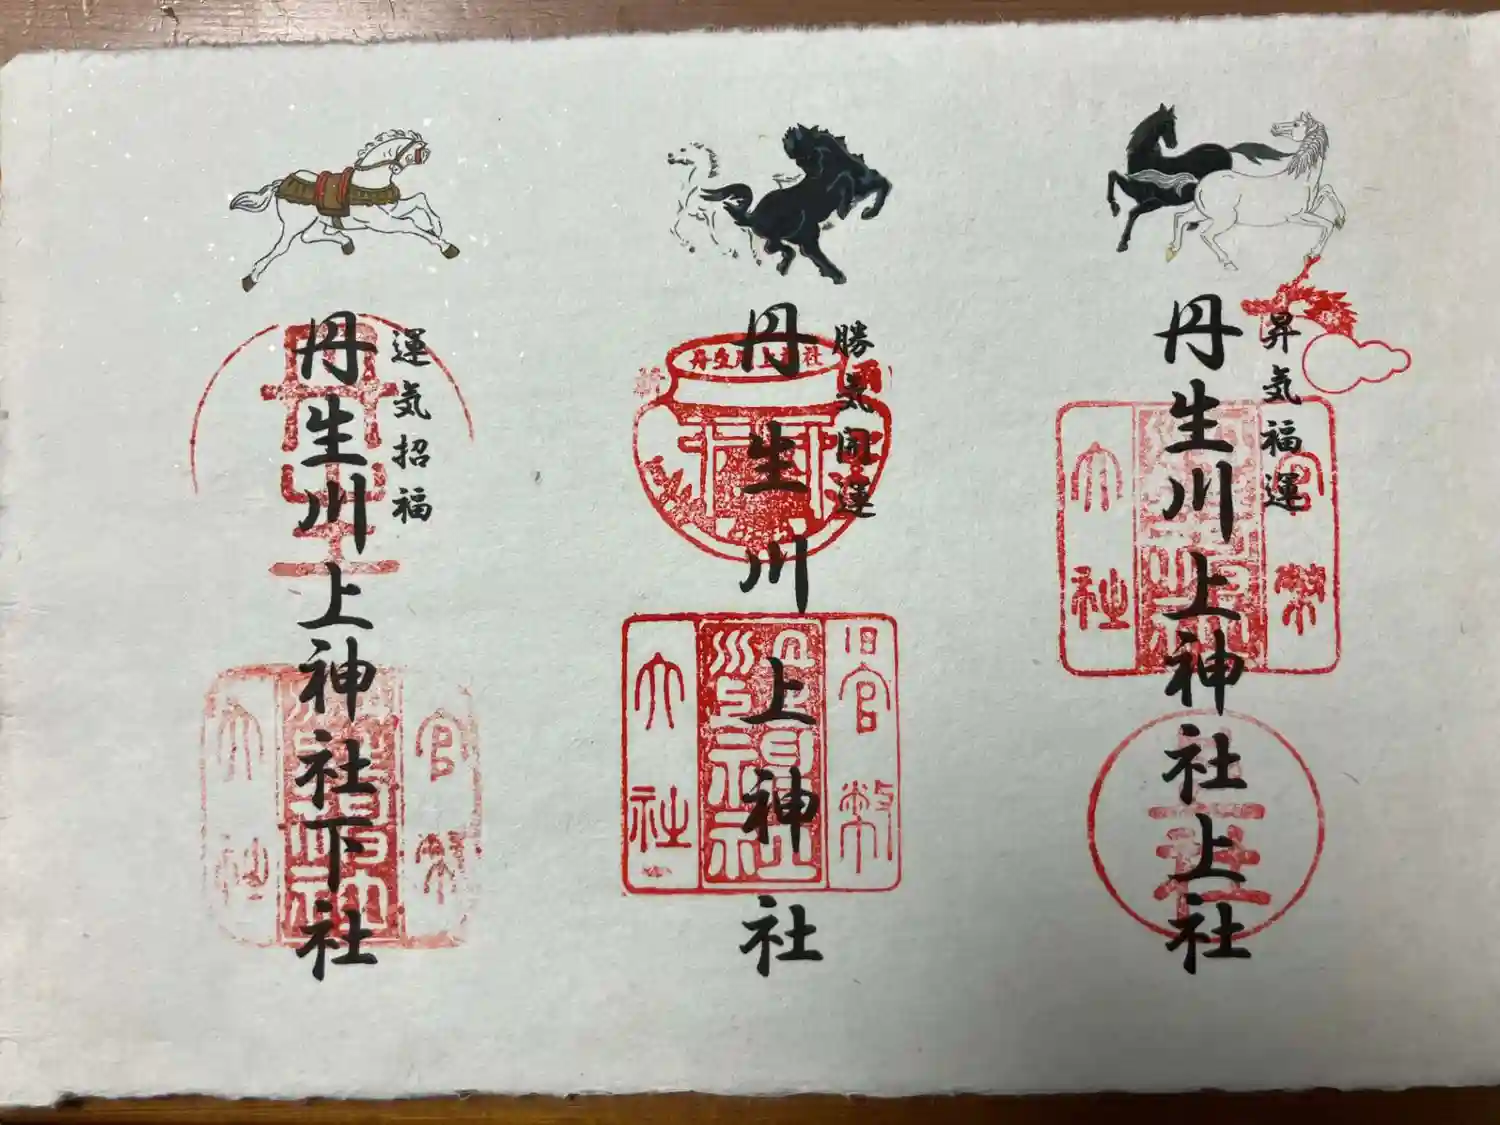 昇気福運
丹生川上神社上社
官幣
大社
勝気開運
丹生川上神社
丹生川上神社
旧官幣
大社
運気招福
丹生川上神社下社
官幣
大社